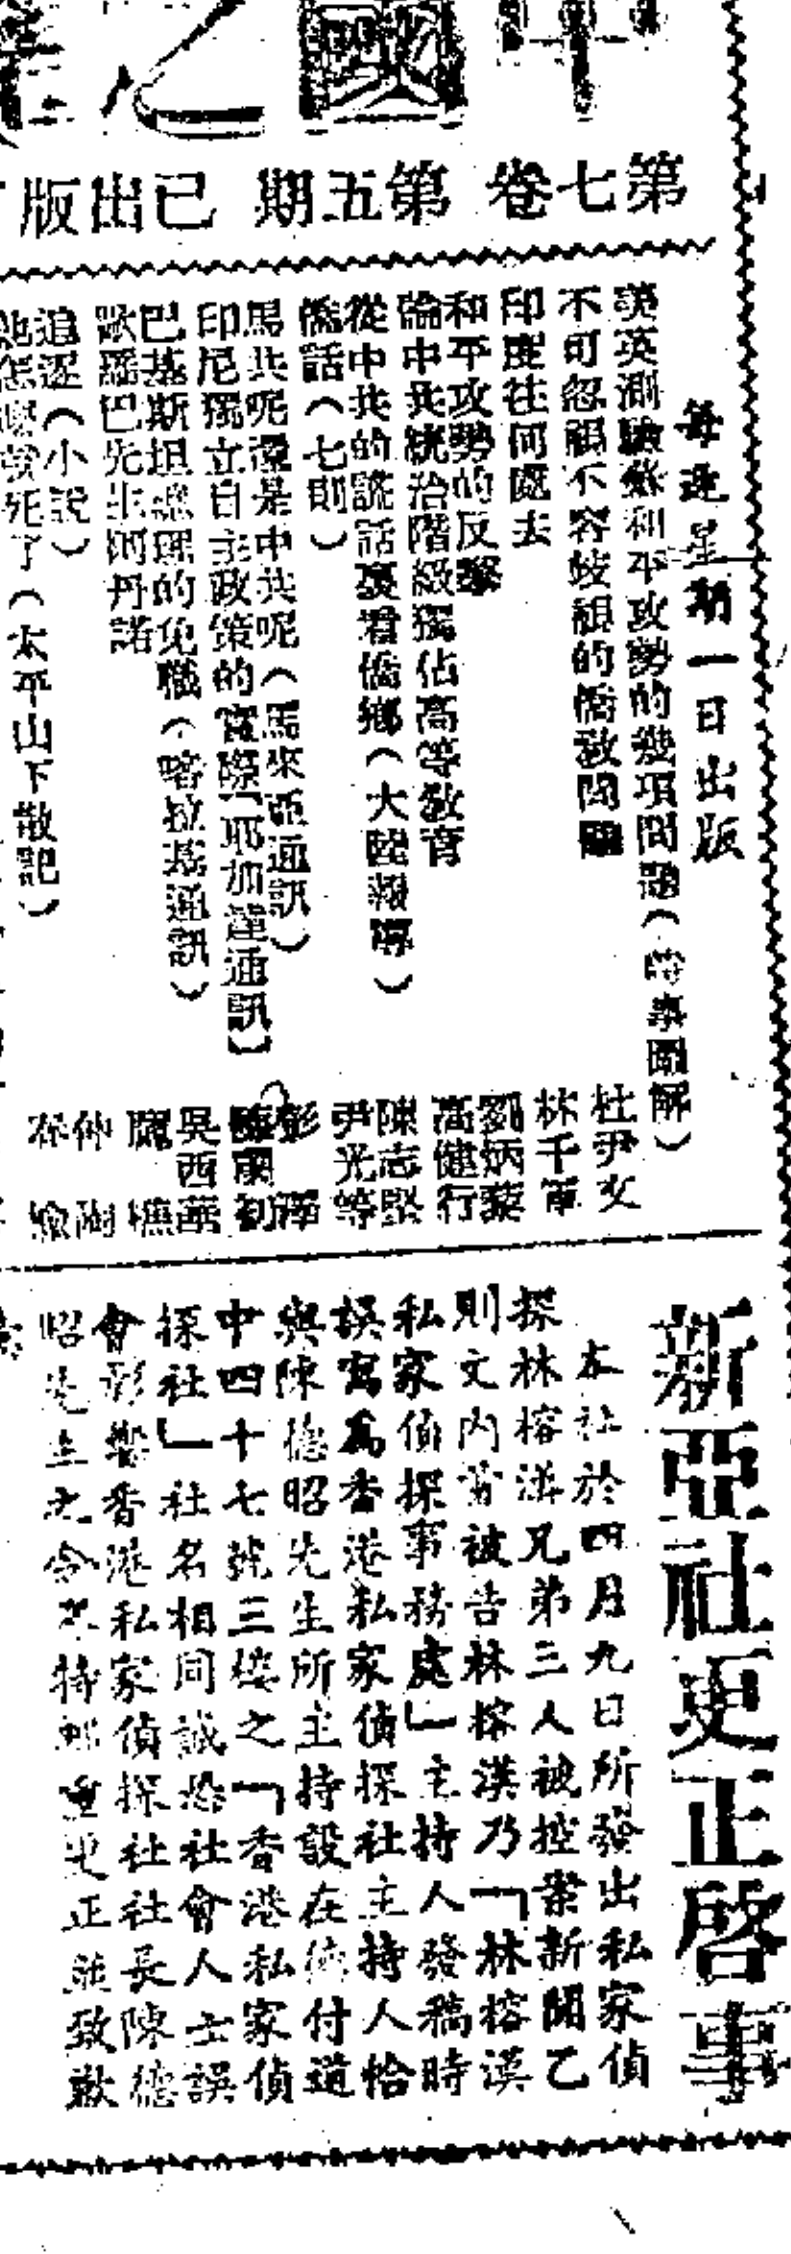 中國之
第七卷 第五期 已出版
每逢星期一日出版
美英測驗蘇和平攻勢的幾項問題(時事圖解)
杜尹文
不可忽視不容歧視的僑教問題
林千軍
印度往何處去
劉炳藜
和平攻勢的反擊
高健行
論中共統治階級獨佔高等教育
陳志堅
從中共的謊話裏看僑鄉(大陸報導)
尹光等
僑話(七則)
馬共呢還是中共呢(馬來亞通訊)
彭 澤
印尼獨立自主政策的實際[耶加達通訊]
初
巴基斯坦總理的免職(喀拉蚩通訊)
吳西
歐羅巴先生阿丹諾
龐 樵
追逐(小說)
仲 陶
死了(太平山下散記)
新亞社更正啓事
本社於四月九日所發出私家偵
探林榕漢兄弟三人被控案新聞乙
則文內謂被告林榕漢乃「林榕漢
私家偵探事務處」主持人發稿時
誤寫爲香港私家偵探社主持人恰
與陳德昭先生所主持設在德付道
中四十七號三樓之「香港私家偵
探社」社名相同誠恐社會人士誤
會影響香港私家偵探社社長陳德
昭先生之令 特鄭重更正並致歉